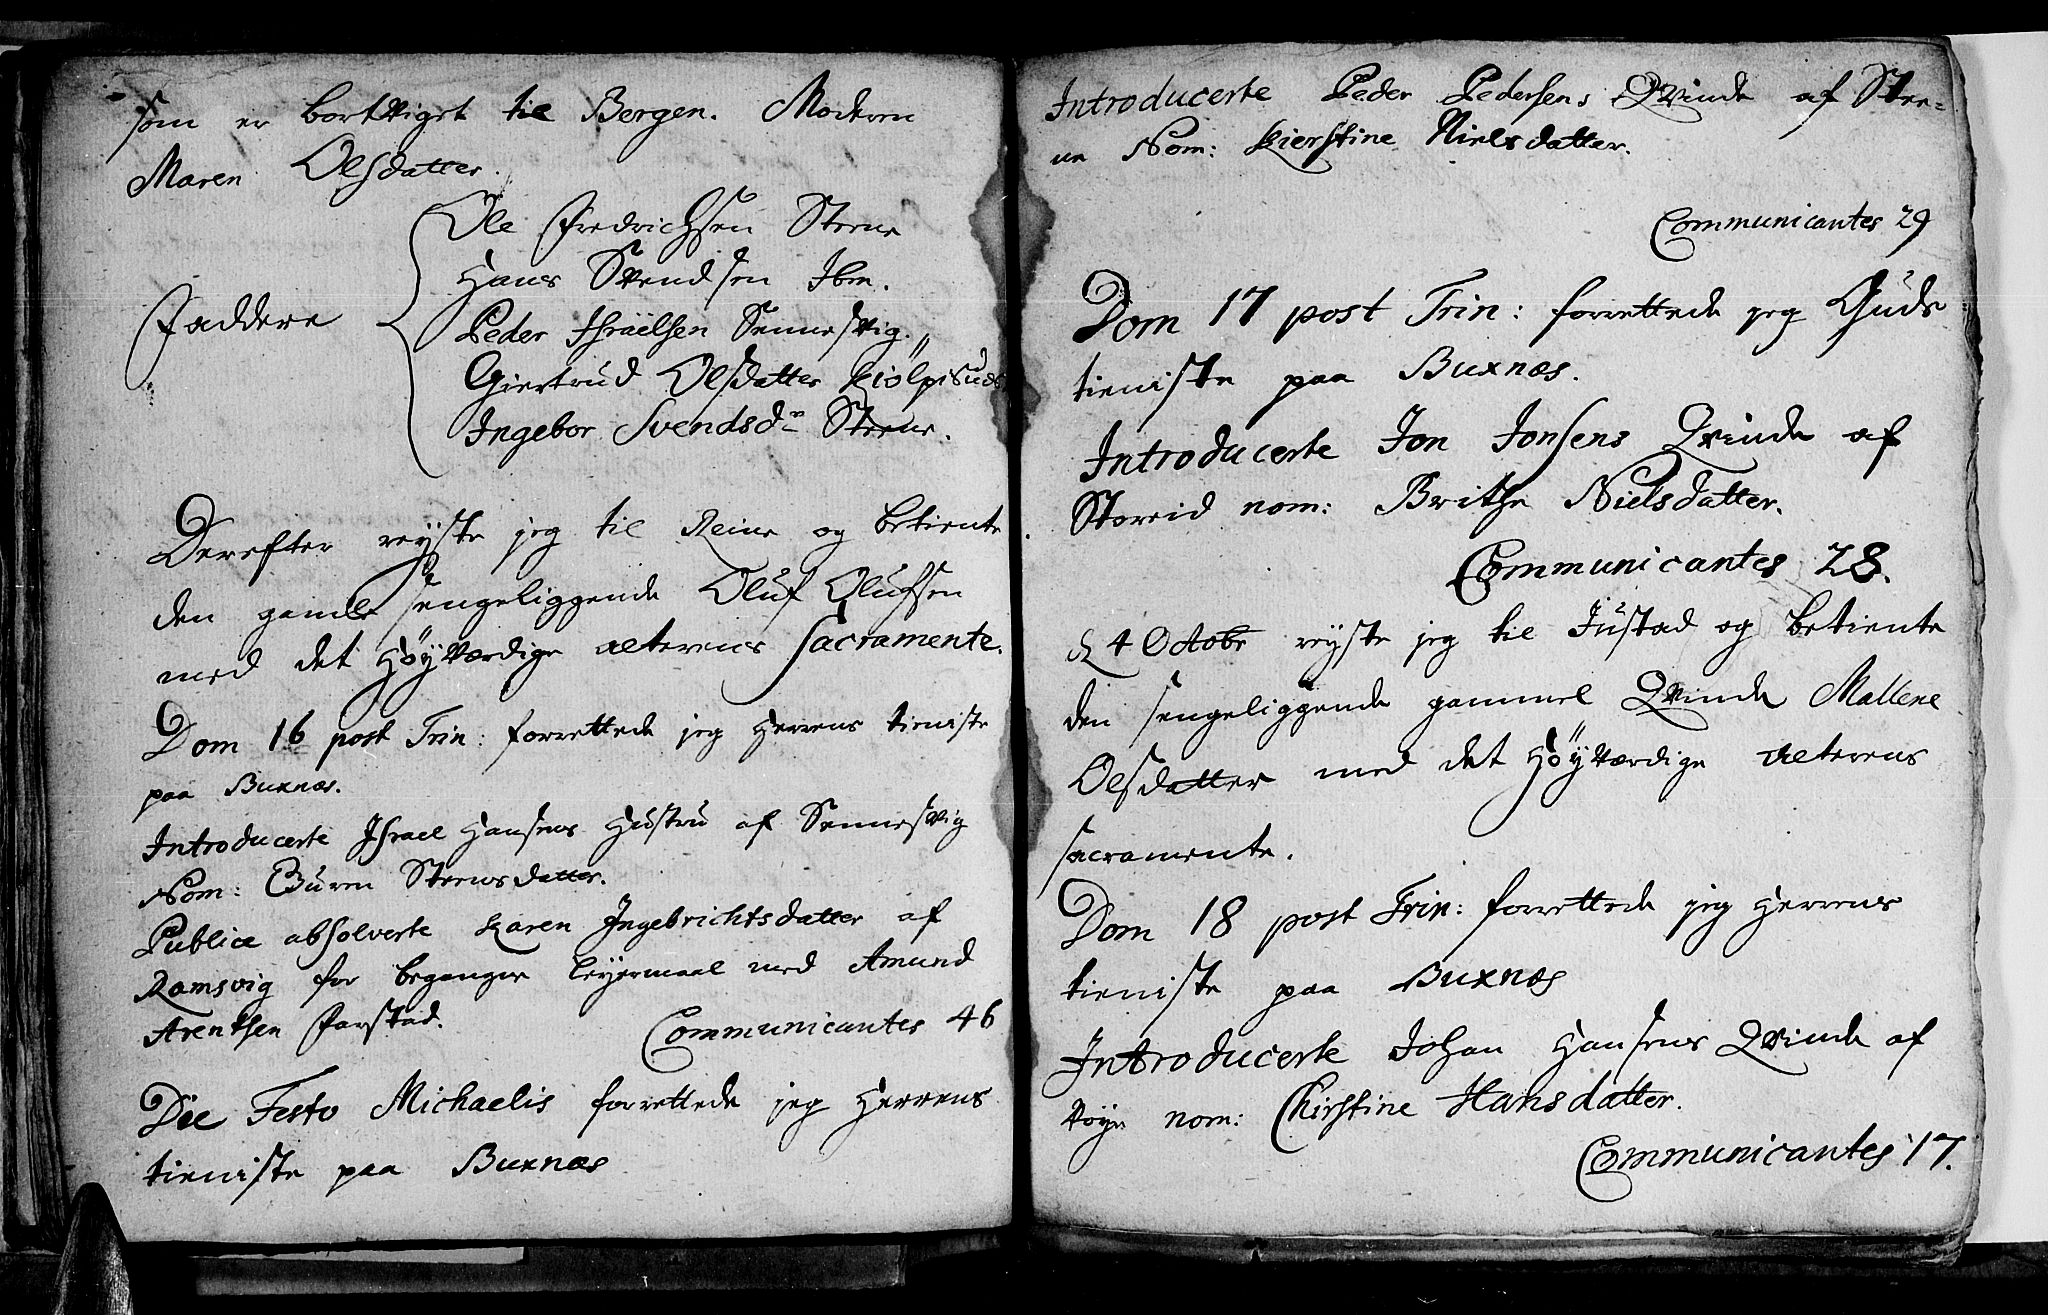 som er bortviget til Bergen. Moderen
Maren Olsdatter.
Faddere
Ole Fredrichsen Steene
Hans Svendsen Ibm.
Peder Isräelsen Sennesvig.
Giertrud Olsdatter Kiölpisnæs
Ingebor Svendsdr Steene.
Derefter reyste jeg til Reine og betiente
den gamle sengeliggende Oluf Olufsen
med det Höyværdige alterens Sacramente.
Dom 16 post Trin: forrettede jeg Herrens tieniste
paa Buxnæs.
Introducerte Israel Hansens Hustru af Sennesvig
Nom: Guren Steensdatter.
Publice absolverte Karen Ingebrichtsdatter af
Ramsvig for begangne leyermaal med Amund
Arentsen Farstad.
Communicantes 46
Die Festo Michaelis forrettede jeg Herrens
tieniste paa Buxnæs
Introducerte Peder Pedersens Qvinde af Stee-
ne Nom: Kierstine Nielsdatter.
Communicantes 29
Dom 17 post Trin: forrettede jeg Guds
tieniste paa Buxnæs.
Introducerte Jon Jonsens Qvinde af
Storeid nom: Brithe Nielsdatter.
Communicantes 28.
d 4 Octobr reyste jeg til Justad og betiente
den sengeliggende gammel Qvinde Mallene
Olsdatter med det Höyværdige alterens
sacramente.
Dom 18 post Trin: forrettede jeg Herrens
tieniste paa Buxnæs
Introducerte Johan Hansens Qvinde af
Vöye nom: Chirstine Hansdatter.
Communicantes 17.